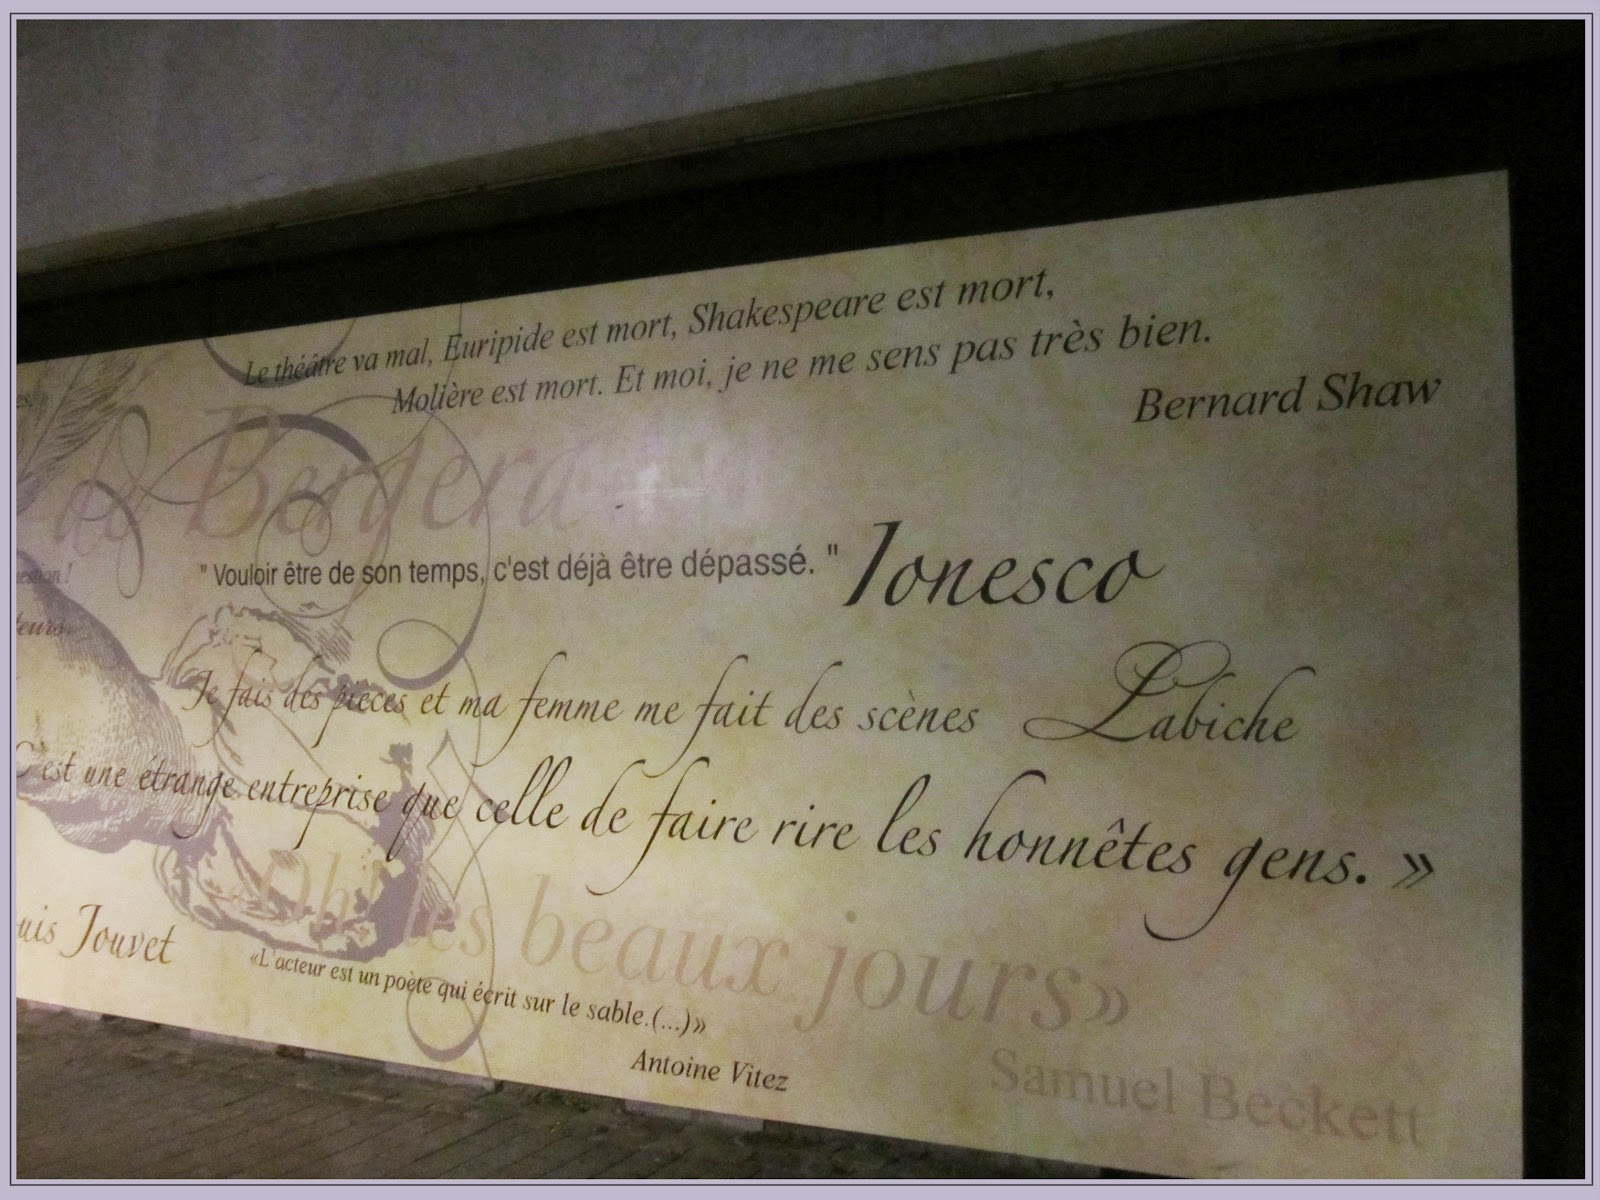 Le théâtre va mal, Euripide est mort, Shakespeare est mort,
Molière est mort. Et moi, je ne me sens pas très bien.
Bernard Shaw
de Bergera
" Vouloir être de son temps, c'est déjà être dépassé. " Ionesco
Je fais des pièces et ma femme me fait des scènes Labiche
C'est une étrange entreprise que celle de faire rire les honnêtes gens. »
«Oh! les beaux jours»
uis Jouvet
«L'acteur est un poète qui écrit sur le sable.(...)»
Antoine Vitez
Samuel Beckett